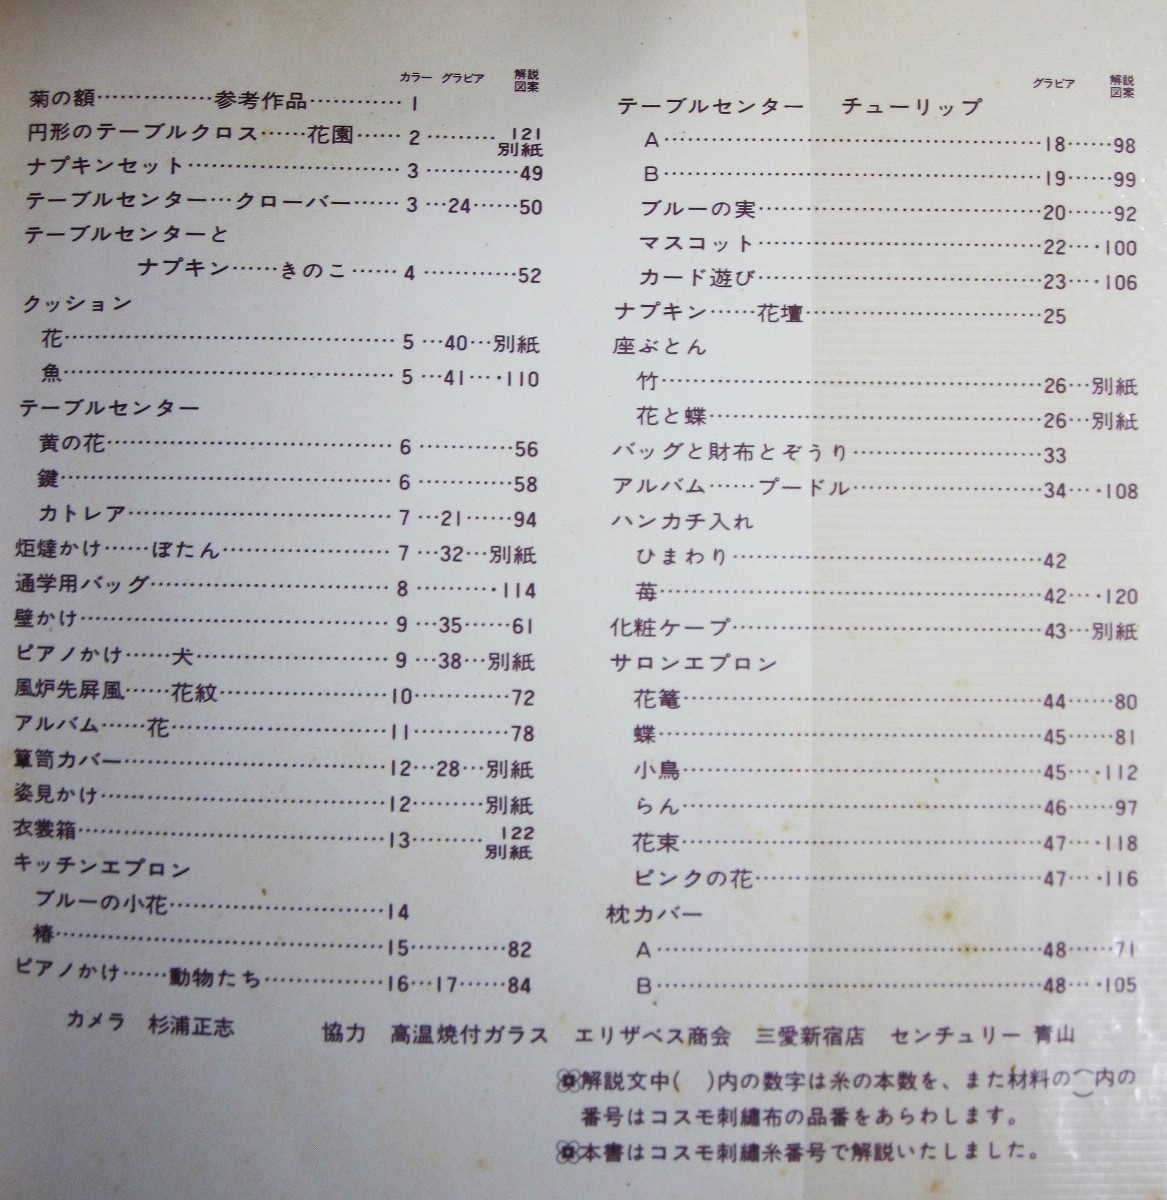 カラー グラビア 解説図案
菊の額……………参考作品…………1
円形のテーブルクロス……花園……2………121別紙
ナプキンセット………………………3…………49
テーブルセンター…クローバー……3…24……50
テーブルセンターと
ナプキン……きのこ……4…………52
クッション
花……………………………………5…40…別紙
魚……………………………………5…41…110
テーブルセンター
黄の花………………………………6…………56
鍵……………………………………6…………58
カトレア……………………………7…21……94
炬燵かけ……ぼたん…………………7…32…別紙
通学用バッグ…………………………8…………114
壁かけ…………………………………9…35……61
ピアノかけ……犬……………………9…38…別紙
風炉先屏風……花紋…………………10…………72
アルバム……花………………………11…………78
簞笥カバー……………………………12…28…別紙
姿見かけ………………………………12………別紙
衣裳箱…………………………………13………122別紙
キッチンエプロン
ブルーの小花………………………14
椿……………………………………15…………82
ピアノかけ……動物たち……………16…17……84
グラビア 解説図案
テーブルセンター チューリップ
A…………………………………………18……98
B…………………………………………19……99
ブルーの実………………………………20……92
マスコット………………………………22…100
カード遊び………………………………23…106
ナプキン……花壇…………………………25
座ぶとん
竹…………………………………………26…別紙
花と蝶……………………………………26…別紙
バッグと財布とぞうり……………………33
アルバム……プードル……………………34…108
ハンカチ入れ
ひまわり…………………………………42
苺…………………………………………42…120
化粧ケープ…………………………………43…別紙
サロンエプロン
花篭………………………………………44……80
蝶…………………………………………45……81
小鳥………………………………………45…112
らん………………………………………46……97
花束………………………………………47…118
ピンクの花………………………………47…116
枕カバー
A…………………………………………48……71
B…………………………………………48…105
カメラ 杉浦正志 協力 高温焼付ガラス エリザベス商会 三愛新宿店 センチュリー青山
解説文中( )内の数字は糸の本数を、また材料の( )内の
番号はコスモ刺繍布の品番をあらわします。
本書はコスモ刺繍糸番号で解説いたしました。